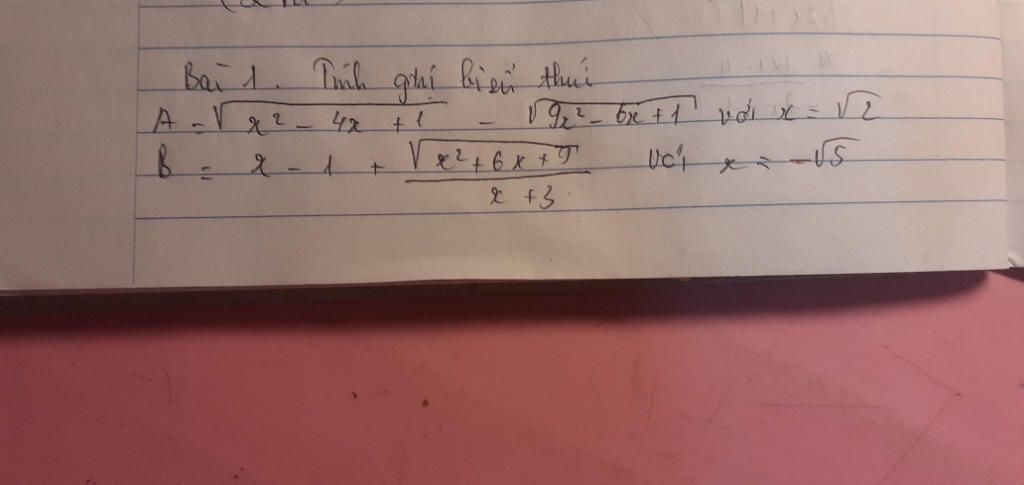 Bài 1. Tính giá trị biểu thức
A = √(x² - 4x + 1) - √(9x² - 6x + 1) với x = √2
B = x - 1 + √(x² + 6x + 9) / (x + 3) với x = -√5